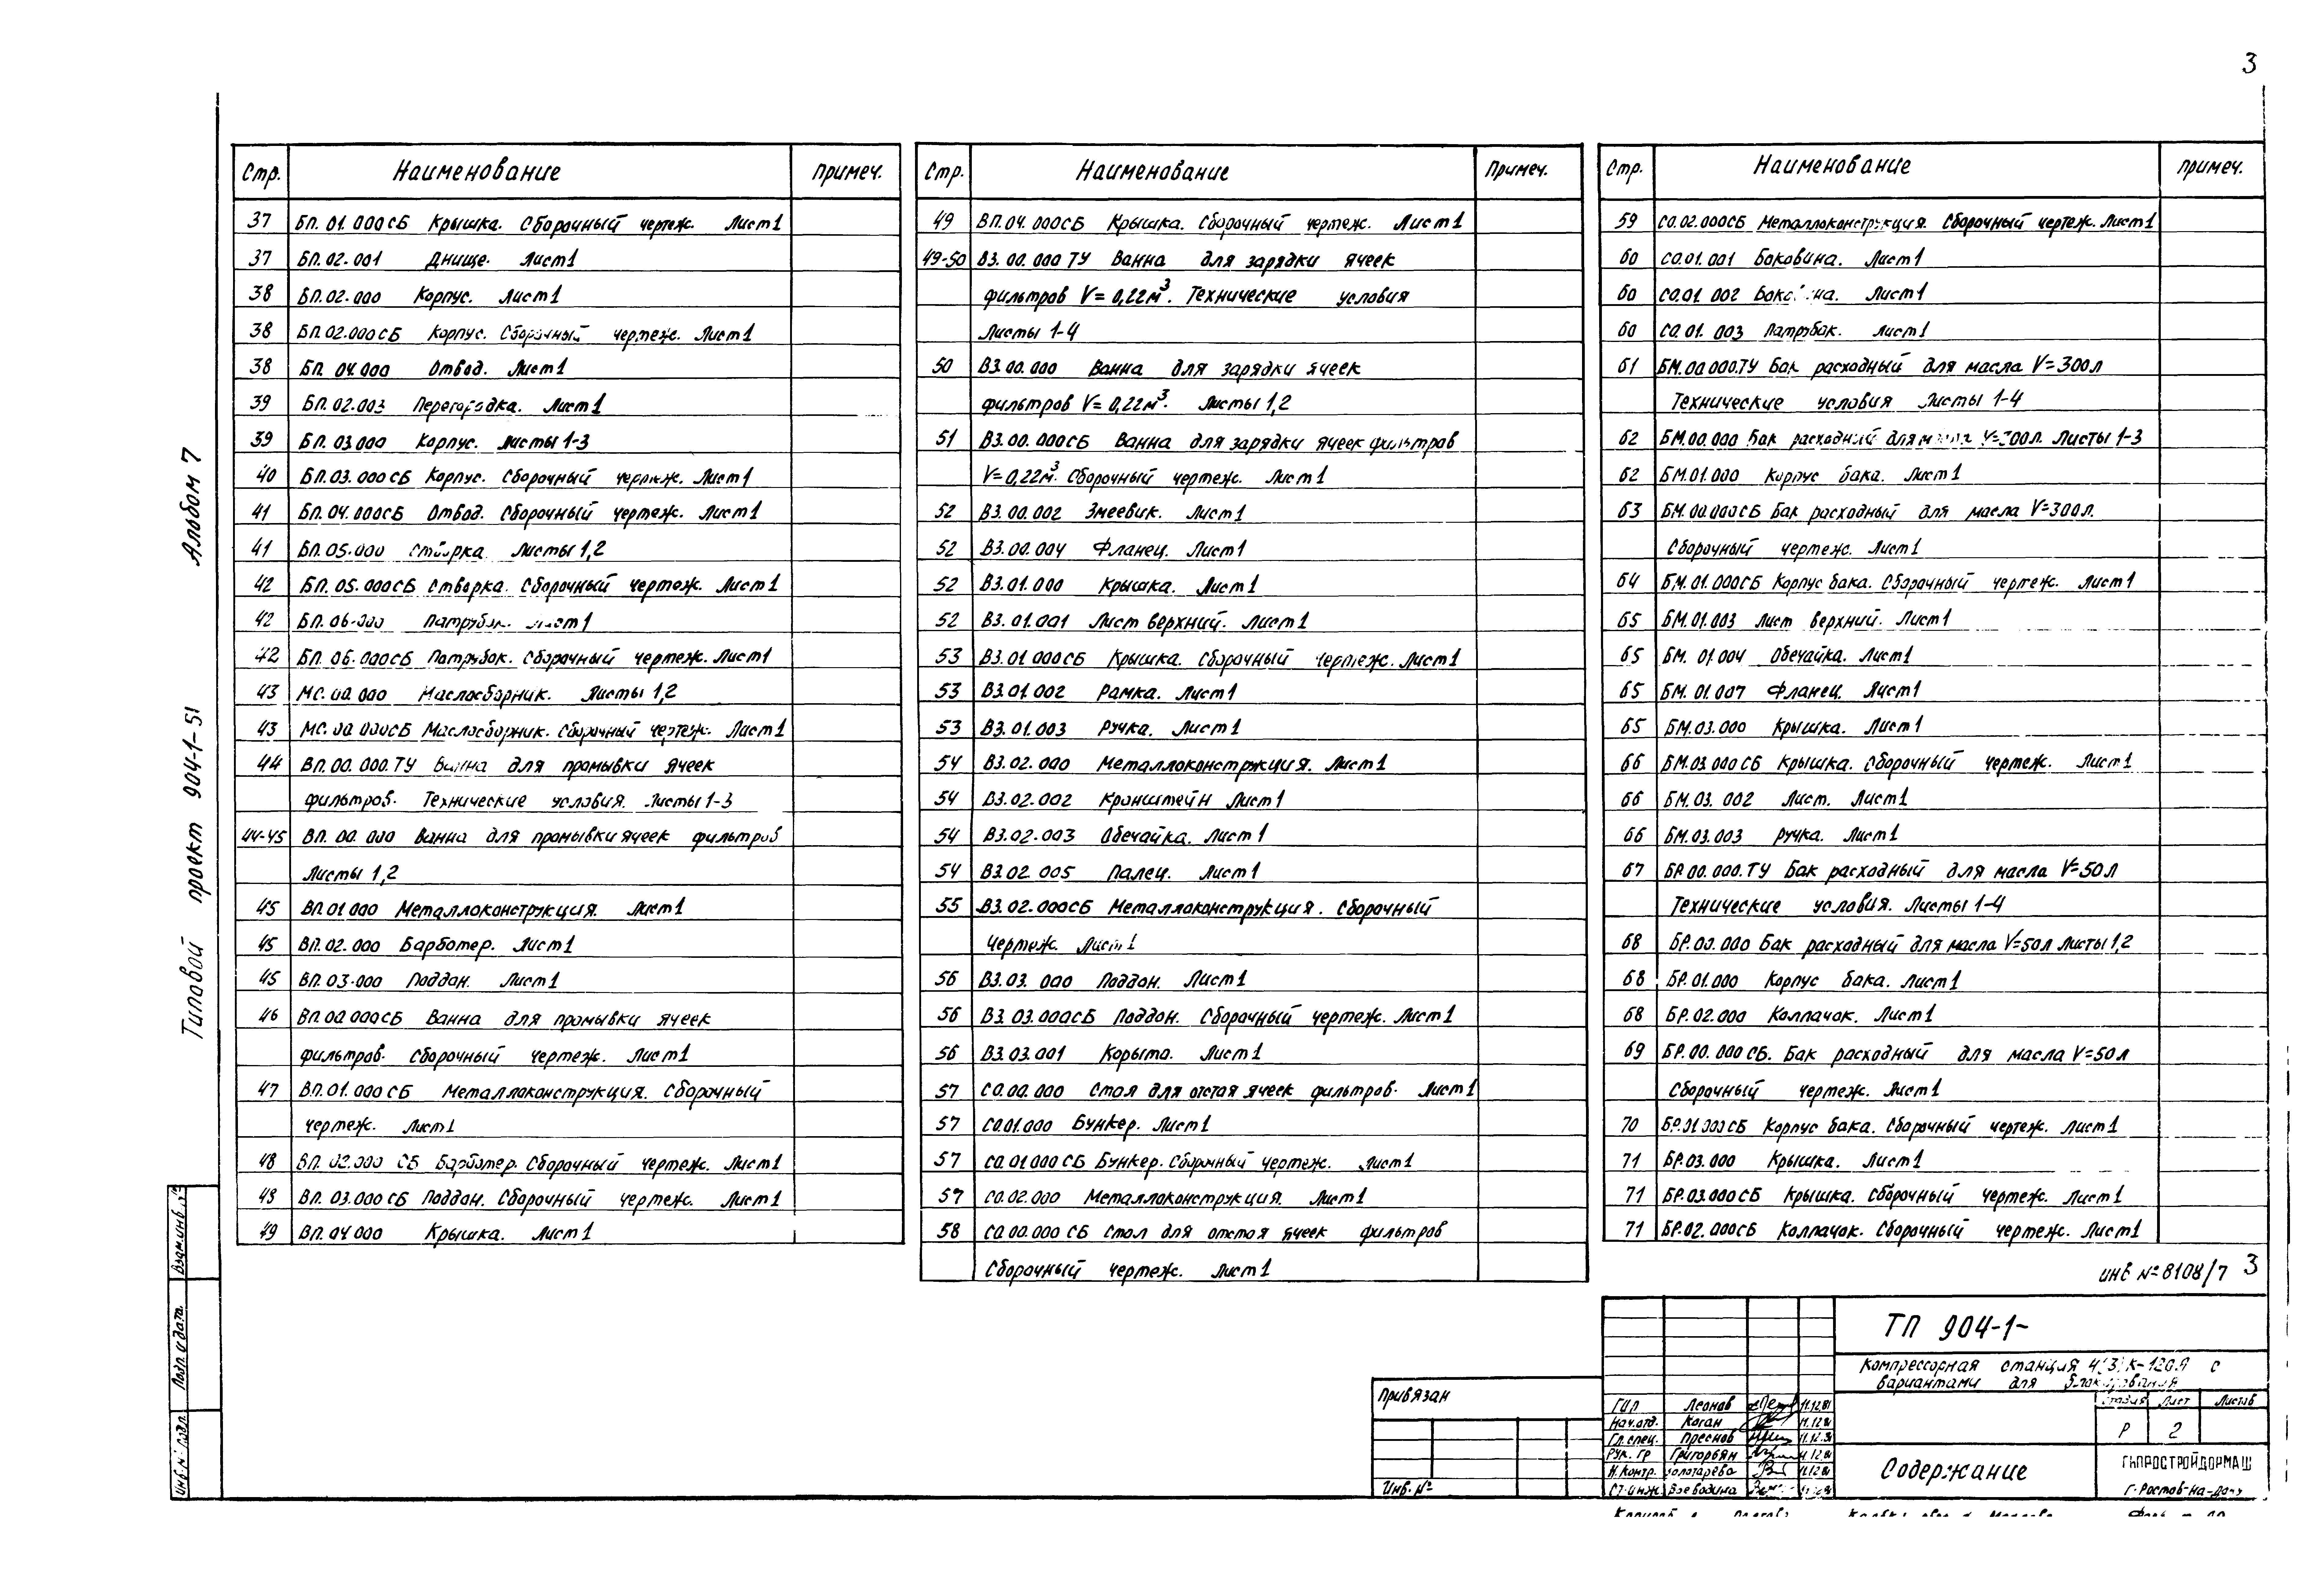 3
Альбом 7
Типовой проект 904-1-51
Стр. Наименование Примеч.
37 БП.01.000СБ Крышка. Сборочный чертеж. Лист1
37 БП.02.001 Днище. Лист1
38 БП.02.000 Корпус. Лист1
38 БП.02.000СБ Корпус. Сборочный чертеж. Лист1
38 БП.04.000 Отвод. Лист1
39 БП.02.003 Перегородка. Лист1
39 БП.03.000 Корпус. Листы 1-3
40 БП.03.000СБ Корпус. Сборочный чертеж. Лист1
41 БП.04.000СБ Отвод. Сборочный чертеж. Лист1
41 БП.05.000 Створка. Листы 1,2
42 БП.05.000СБ Створка. Сборочный чертеж. Лист1
42 БП.06.000 Патрубок. Лист1
42 БП.06.000СБ Патрубок. Сборочный чертеж. Лист1
43 МС.00.000 Маслосборник. Листы 1,2
43 МС.00.000СБ Маслосборник. Сборочный чертеж. Лист1
44 ВП.00.000.ТУ Ванна для промывки ячеек
фильтров. Технические условия. Листы 1-3
44-45 ВП.00.000 Ванна для промывки ячеек фильтров
Листы 1,2
45 ВП.01.000 Металлоконструкция. Лист1
45 ВП.02.000 Барботер. Лист1
45 ВП.03.000 Поддон. Лист1
46 ВП.00.000СБ Ванна для промывки ячеек
фильтров. Сборочный чертеж. Лист1
47 ВП.01.000СБ Металлоконструкция. Сборочный
чертеж. Лист1
48 ВП.02.000 СБ Барботер. Сборочный чертеж. Лист1
48 ВП.03.000СБ Поддон. Сборочный чертеж. Лист1
49 ВП.04.000 Крышка. Лист1
Стр. Наименование Примеч.
49 ВП.04.000СБ Крышка. Сборочный чертеж. Лист1
49-50 ВЗ.00.000 ТУ Ванна для зарядки ячеек
фильтров V=0,22м³. Технические условия
Листы 1-4
50 ВЗ.00.000 Ванна для зарядки ячеек
фильтров V=0,22м³. Листы 1,2
51 ВЗ.00.000СБ Ванна для зарядки ячеек фильтров
V=0,22м³. Сборочный чертеж. Лист1
52 ВЗ.00.002 Змеевик. Лист1
52 ВЗ.00.004 Фланец. Лист1
52 ВЗ.01.000 Крышка. Лист1
52 ВЗ.01.001 Лист верхний. Лист1
53 ВЗ.01.000СБ Крышка. Сборочный чертеж. Лист1
53 ВЗ.01.002 Рамка. Лист1
53 ВЗ.01.003 Ручка. Лист1
54 ВЗ.02.000 Металлоконструкция. Лист1
54 ВЗ.02.002 Кронштейн Лист1
54 ВЗ.02.003 Обечайка. Лист1
54 ВЗ.02.005 Палец. Лист1
55 ВЗ.02.000СБ Металлоконструкция. Сборочный
чертеж. Лист1
56 ВЗ.03.000 Поддон. Лист1
56 ВЗ.03.000СБ Поддон. Сборочный чертеж. Лист1
56 ВЗ.03.001 Корыто. Лист1
57 СО.00.000 Стол для отстоя ячеек фильтров. Лист1
57 СО.01.000 Бункер. Лист1
57 СО.01.000 СБ Бункер. Сборочный чертеж. Лист1
57 СО.02.000 Металлоконструкция. Лист1
58 СО.00.000 СБ Стол для отстоя ячеек фильтров
Сборочный чертеж. Лист1
Стр. Наименование Примеч.
59 СО.02.000СБ Металлоконструкция. Сборочный чертеж. Лист1
60 СО.01.001 Боковина. Лист1
60 СО.01.002 Боковина. Лист1
60 СО.01.003 Патрубок. Лист1
61 БМ.00.000.ТУ Бак расходный для масла V=300л
Технические условия Листы 1-4
62 БМ.00.000 Бак расходный для масла V=300л. Листы 1-3
62 БМ.01.000 Корпус бака. Лист1
63 БМ.00.000СБ Бак расходный для масла V=300л.
Сборочный чертеж. Лист1
64 БМ.01.000СБ Корпус бака. Сборочный чертеж. Лист1
65 БМ.01.003 Лист верхний. Лист1
65 БМ.01.004 Обечайка. Лист1
65 БМ.01.007 Фланец. Лист1
65 БМ.03.000 Крышка. Лист1
66 БМ.03.000СБ Крышка. Сборочный чертеж. Лист1
66 БМ.03.002 Лист. Лист1
66 БМ.03.003 Ручка. Лист1
67 БР.00.000.ТУ Бак расходный для масла V=50л
Технические условия. Листы 1-4
68 БР.00.000 Бак расходный для масла V=50л Листы 1,2
68 БР.01.000 Корпус бака. Лист1
68 БР.02.000 Колпачок. Лист1
69 БР.00.000СБ. Бак расходный для масла V=50л
Сборочный чертеж. Лист1
70 БР.01.000СБ Корпус бака. Сборочный чертеж. Лист1
71 БР.03.000 Крышка. Лист1
71 БР.03.000СБ Крышка. Сборочный чертеж. Лист1
71 БР.02.000СБ Колпачок. Сборочный чертеж. Лист1
ИНВ №8108/7 3
ТП 904-1-
Компрессорная станция 4(3)К-120А с
вариантами для блокирования
Стадия Лист Листов
Р 2
Содержание
ГИПРОСТРОЙДОРМАШ
г. Ростов-на-Дону
Привязан
Инв. №
ГИП Леонов 11.12.81
Нач.отд. Коган 11.12.81
Гл.спец. Преснов 11.12.81
Рук. гр Григорьян 11.12.81
Н.контр. Золотарева 11.12.81
Ст.инж. Воеводина
Взам.инв.№
Подп. и дата.
Инв.№ подл.